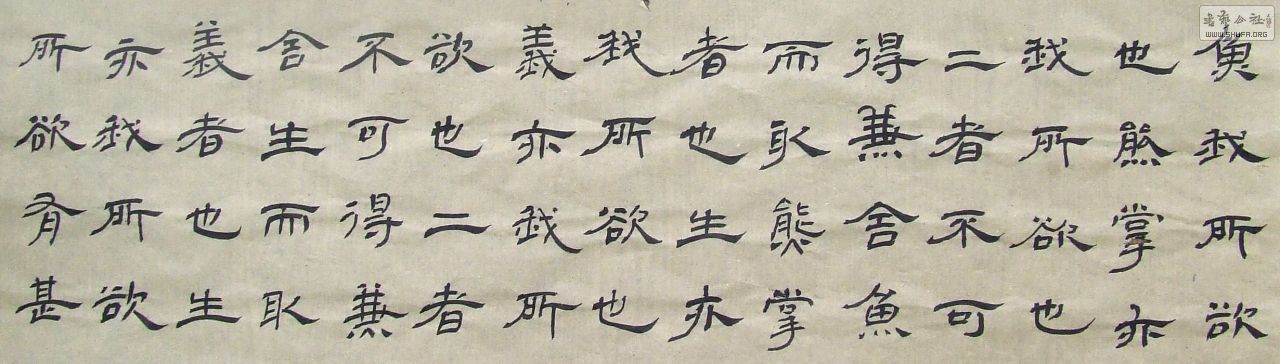 魚我所欲
也熊掌亦
我所欲也
二者不可
得兼舍魚
而取熊掌
者也生亦
我所欲也
義亦我所
欲也二者
不可得兼
舍生而取
義者也生
亦我所欲
所欲有甚
WWW.SHUFA.ORG